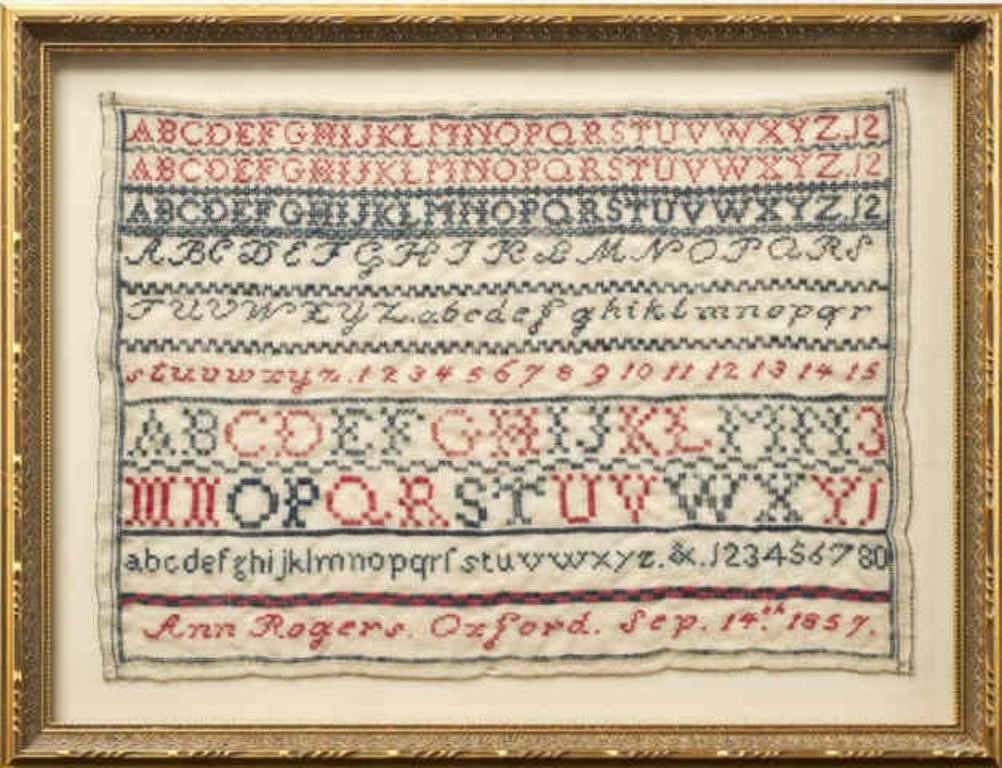 ABCDEFGHIJKLMNOPQRSTUVWXYZ.12
ABCDEFGHIJKLMNOPQRSTUVWXYZ.12
ABCDEFGHIJKLMNOPQRSTUVWXYZ.12
ABCDEFGHIKLMNOPQRS
TUVWXYZ.abcdefghiklmnopqr
stuvwxyz.1 2 3 4 5 6 7 8 9 10 11 12 13 14 15
ABCDEFGHIJKLMN3
MNOPQRSTUVWXY1
abcdefghijklmnopqrſstuvwxyz.&.12345678 0
Ann Rogers. Oxford. Sep. 14.th 1857.